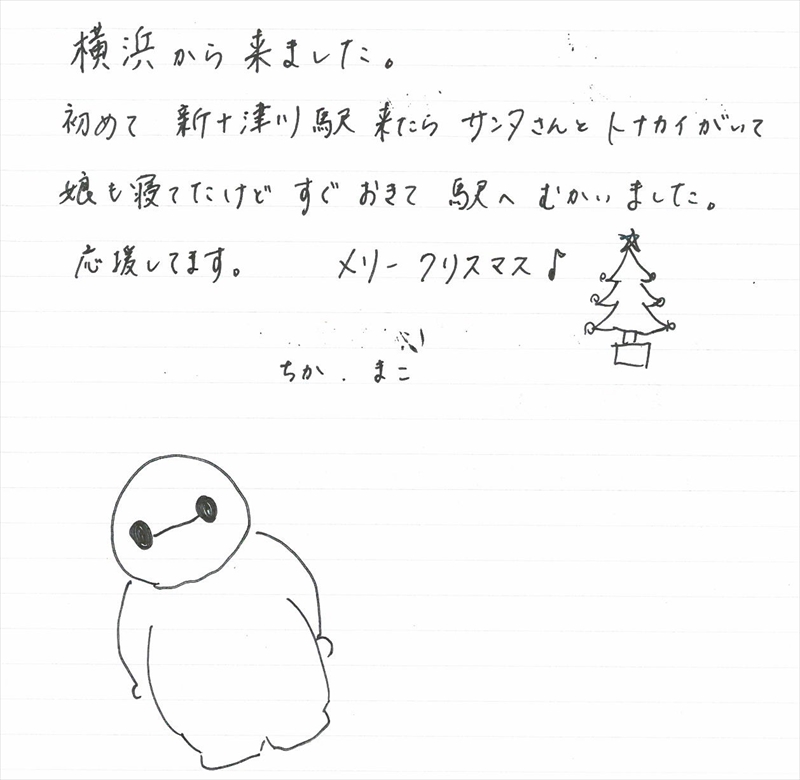 横浜から来ました。
初めて 新十津川駅 来たら サンタさんと トナカイがいて
娘も寝てたけど すぐ おきて 駅へ むかいました。
応援してます。 メリークリスマス♪
ちか . まこ